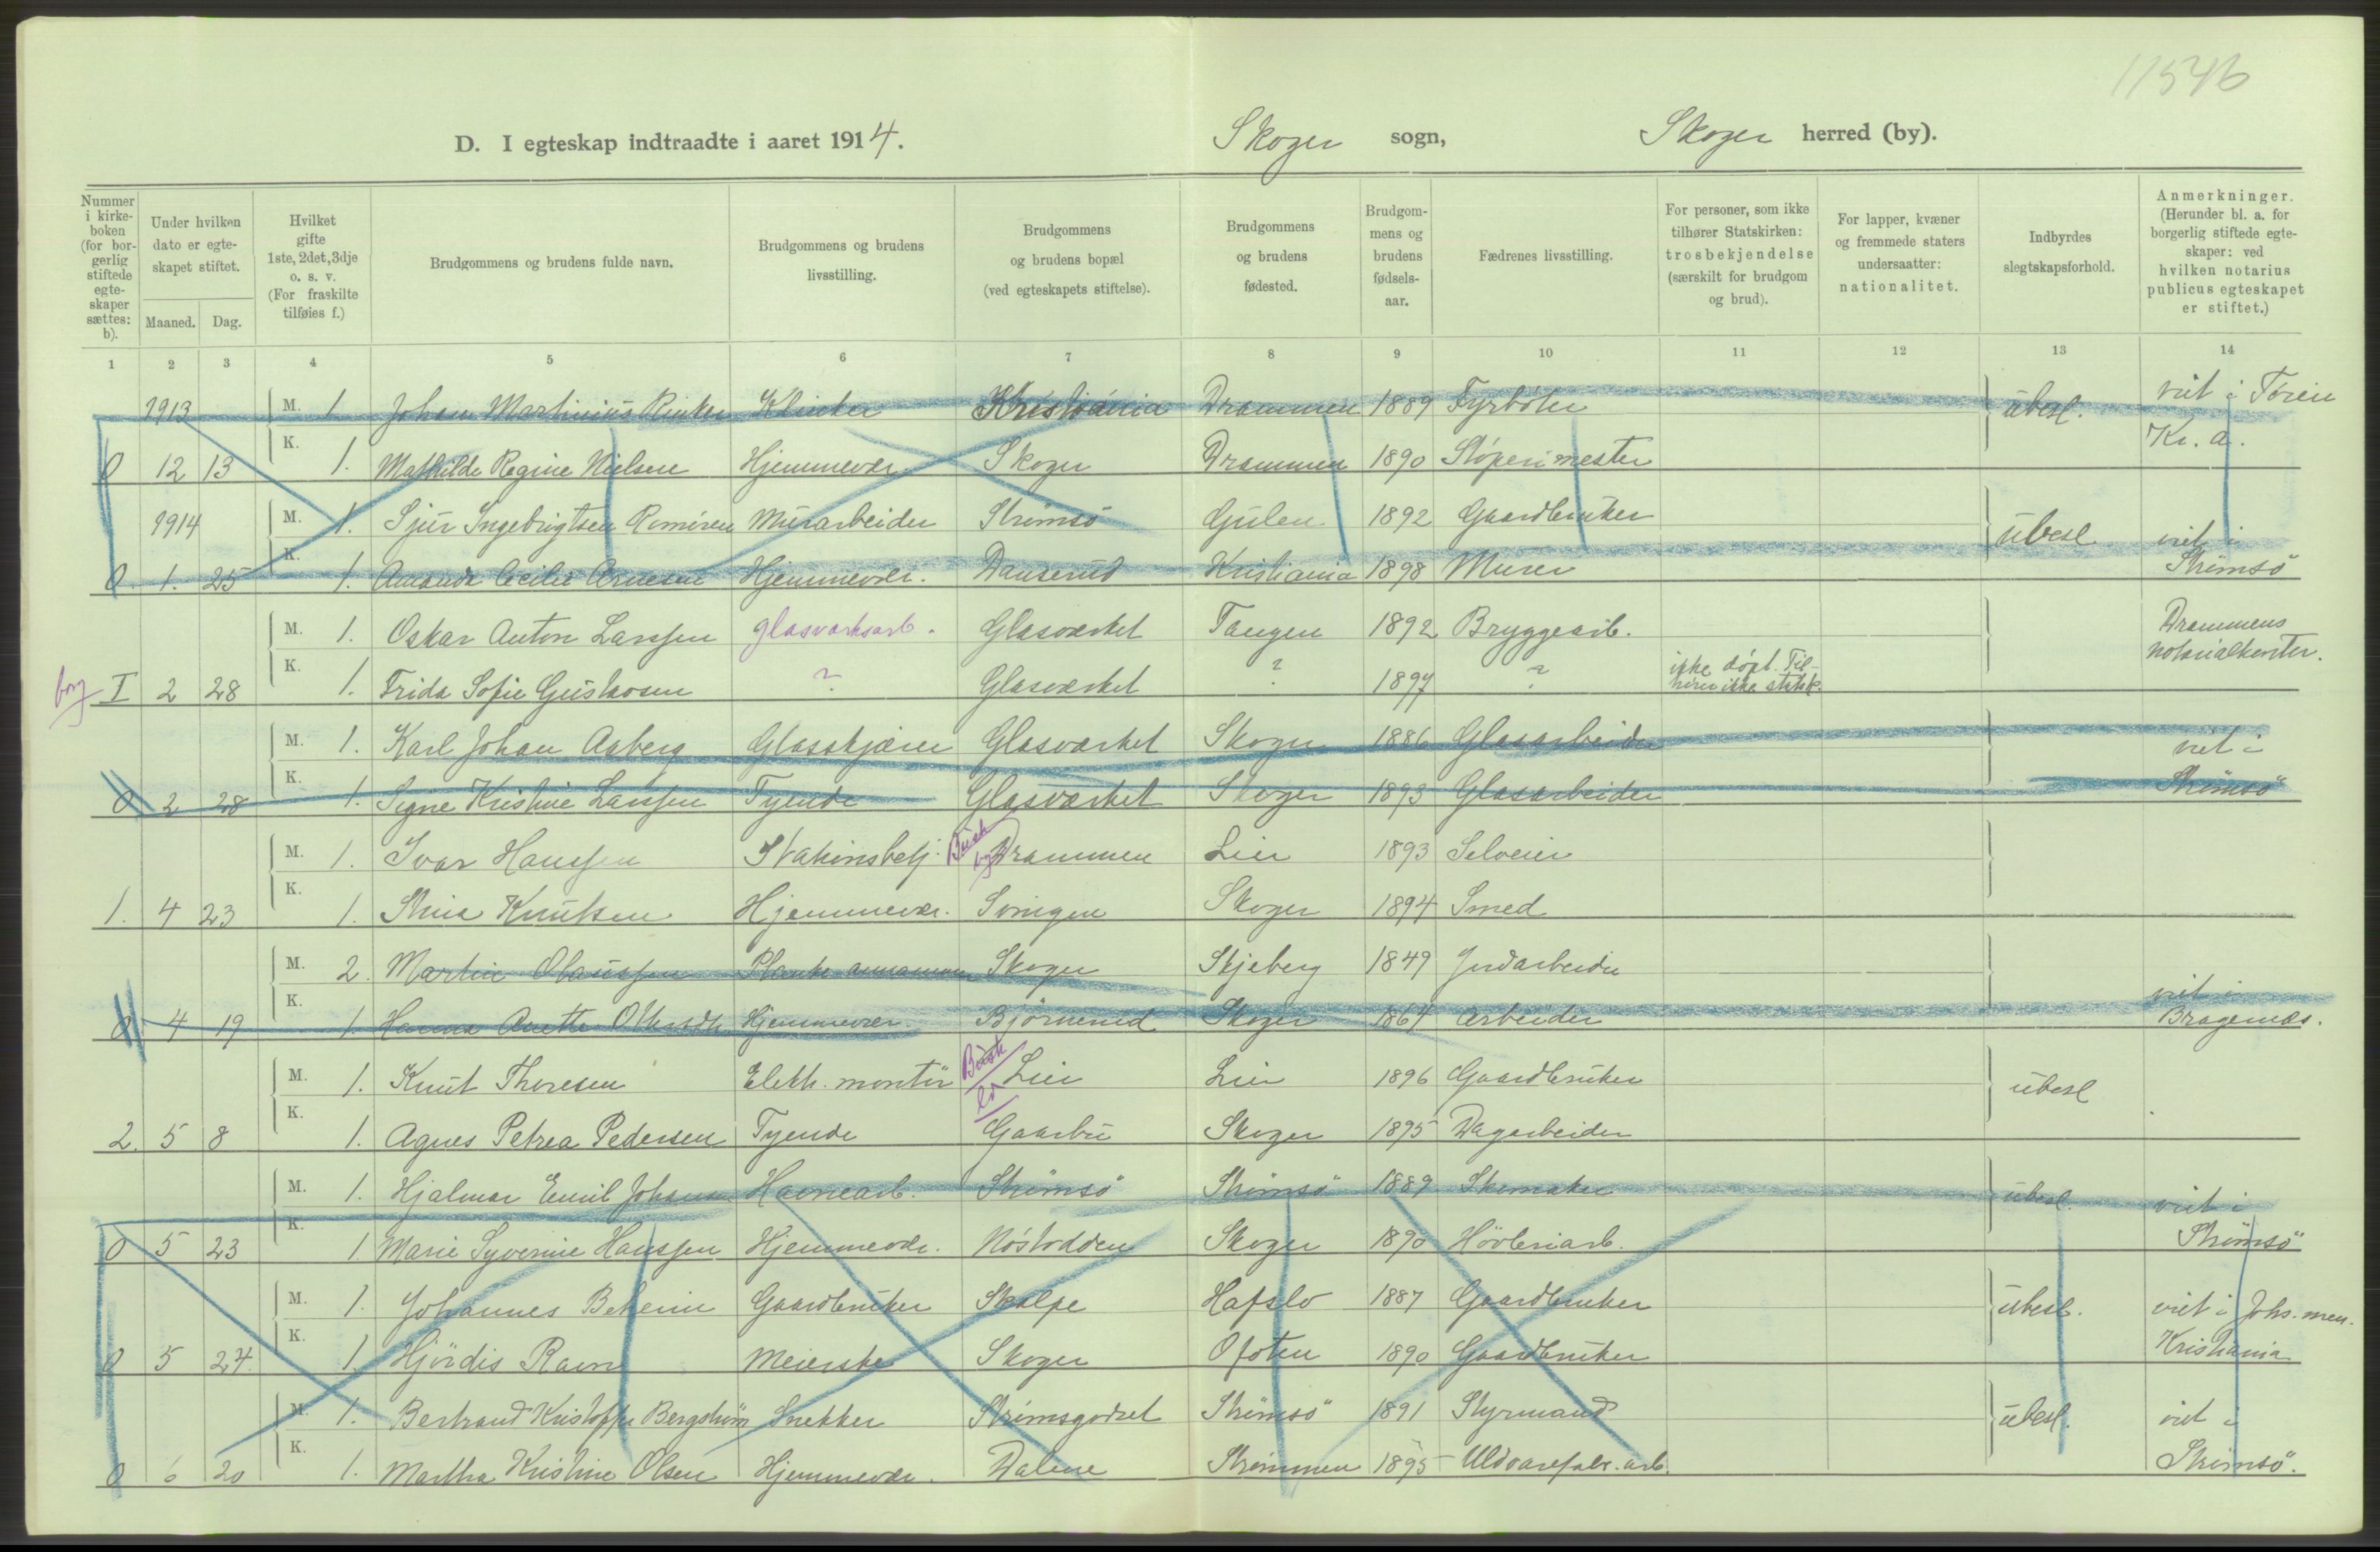 11546
D. I egteskap indtraadte i aaret 1914. Skoger sogn, Skoger herred (by).
Nummer i kirke-boken (for bor-gerlig stiftede egte-skaper sættes: b).
Under hvilken dato er egte-skapet stiftet.
Maaned. Dag.
Hvilket gifte 1ste, 2det, 3dje o. s. v. (For fraskilte tilføies f.)
Brudgommens og brudens fulde navn.
Brudgommens og brudens livsstilling.
Brudgommens og brudens bopæl (ved egteskapets stiftelse).
Brudgommens og brudens fødested.
Brudgom-mens og brudens fødsels-aar.
Fædrenes livsstilling.
For personer, som ikke tilhører Statskirken: trosbekjendelse (særskilt for brudgom og brud).
For lapper, kvæner og fremmede staters undersaatter: nationalitet.
Indbyrdes slegtskapsforhold.
Anmerkninger. (Herunder bl. a. for borgerlig stiftede egte-skaper: ved hvilken notarius publicus egteskapet er stiftet.)
1 2 3 4 5 6 7 8 9 10 11 12 13 14
1913 M. 1 Johan Martinius Kristiania Drammen 1889 Fyrböter ubesl. viet i Töien
0 12 13 K. 1. Mathilde Regine Nielsen Hjemmevær. Skoger Drammen 1890 Stöperimester Kr. a.
1914 M. 1. Sjur Ingebrigtsen Murarbeider Strömsö Gulen 1892 Gaardbruker ubesl viet i
0. 1. 25 K. 1. Amanda Cecilie Arnesen Hjemmevær. Danserud Kristiania 1898 Murer Strömsö
M. 1. Oskar Anton Larssen glasværksarb. Glasværket Tangen 1892 Bryggearb. Drammens notarialkontor.
borg I 2 28 K. 1. Frida Sofie Gustavsen ? Glasværket ? 1897 ? ikke döpt. Til-hörer ikke statsk.
M. 1. Karl Johan Aaberg Glasskjærer Glasværket Skoger 1886 Glasarbeider viet i
0 2 28 K. 1. Signe Kristine Larssen Tyende Glasværket Skoger 1893 Glasarbeider Strömsö
M. 1. Ivar Hanssen Stationsbetj. Busk by Drammen Lier 1893 Selveier
1. 4 23 K. 1. Stina Knutsen Hjemmevær. Svingen Skoger 1894 Smed
M. 2. Martin Olaussen Skoger Skjeberg 1849 Jordarbeider viet i
0 4 19 K. 1. Hanna Anette Hjemmevær. Björnerud Skoger 1864 Arbeider Bragernæs.
M. 1. Knut Thoresen Elektr. montör Busk ld Lier Lier 1896 Gaardbruker ubesl
2. 5 8 K. 1. Agnes Petrea Pedersen Tyende Gaarbu Skoger 1895 Dagarbeider
M. 1. Hjalmar Emil Johansen Havnearb. Strömsö Strömsö 1889 Skomaker ubesl. viet i
0 5 23 K. 1. Marie Syverine Hanssen Hjemmevær. Nöstodden Skoger 1890 Hövleriarb. Strömsö
M. 1. Johannes Beheim Gaardbruker Skalpe Hafslo 1887 Gaardbruker ubesl. viet i Johs. men.
0 5 24. K. 1. Hjördis Ravn Meierske Skoger Ofoten 1890 Gaardbruker Kristiania
M. 1. Bertrand Kristoffer Bergström Snekker Strömsgodset Strömsö 1891 Styrmand ubesl. viet i
0 6 20 K. 1. Martha Kristine Olsen Hjemmevær. Dalene Strömmen 1895 Uldvarefabr. arb. Strömsö.